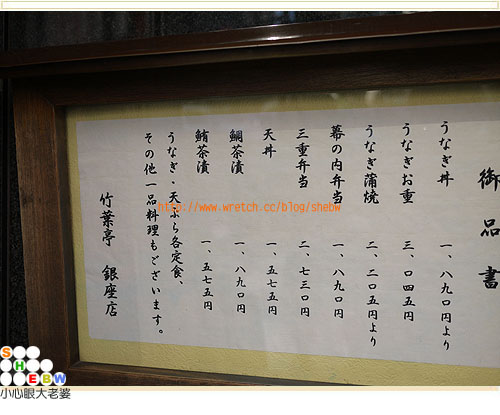 御品書
うなぎ丼 一、八九〇円より
うなぎお重 三、〇四五円
うなぎ蒲焼 二、二〇五円より
幕の内弁当 一、八九〇円
三重弁当 二、七三〇円
天丼 一、五七五円
鯛茶漬 一、八九〇円
鮪茶漬 一、五七五円
うなぎ・天ぷら各定食
その他一品料理もございます。
竹葉亭 銀座店
http://www.wretch.cc/blog/shebw
SHEBW
小心眼大老婆